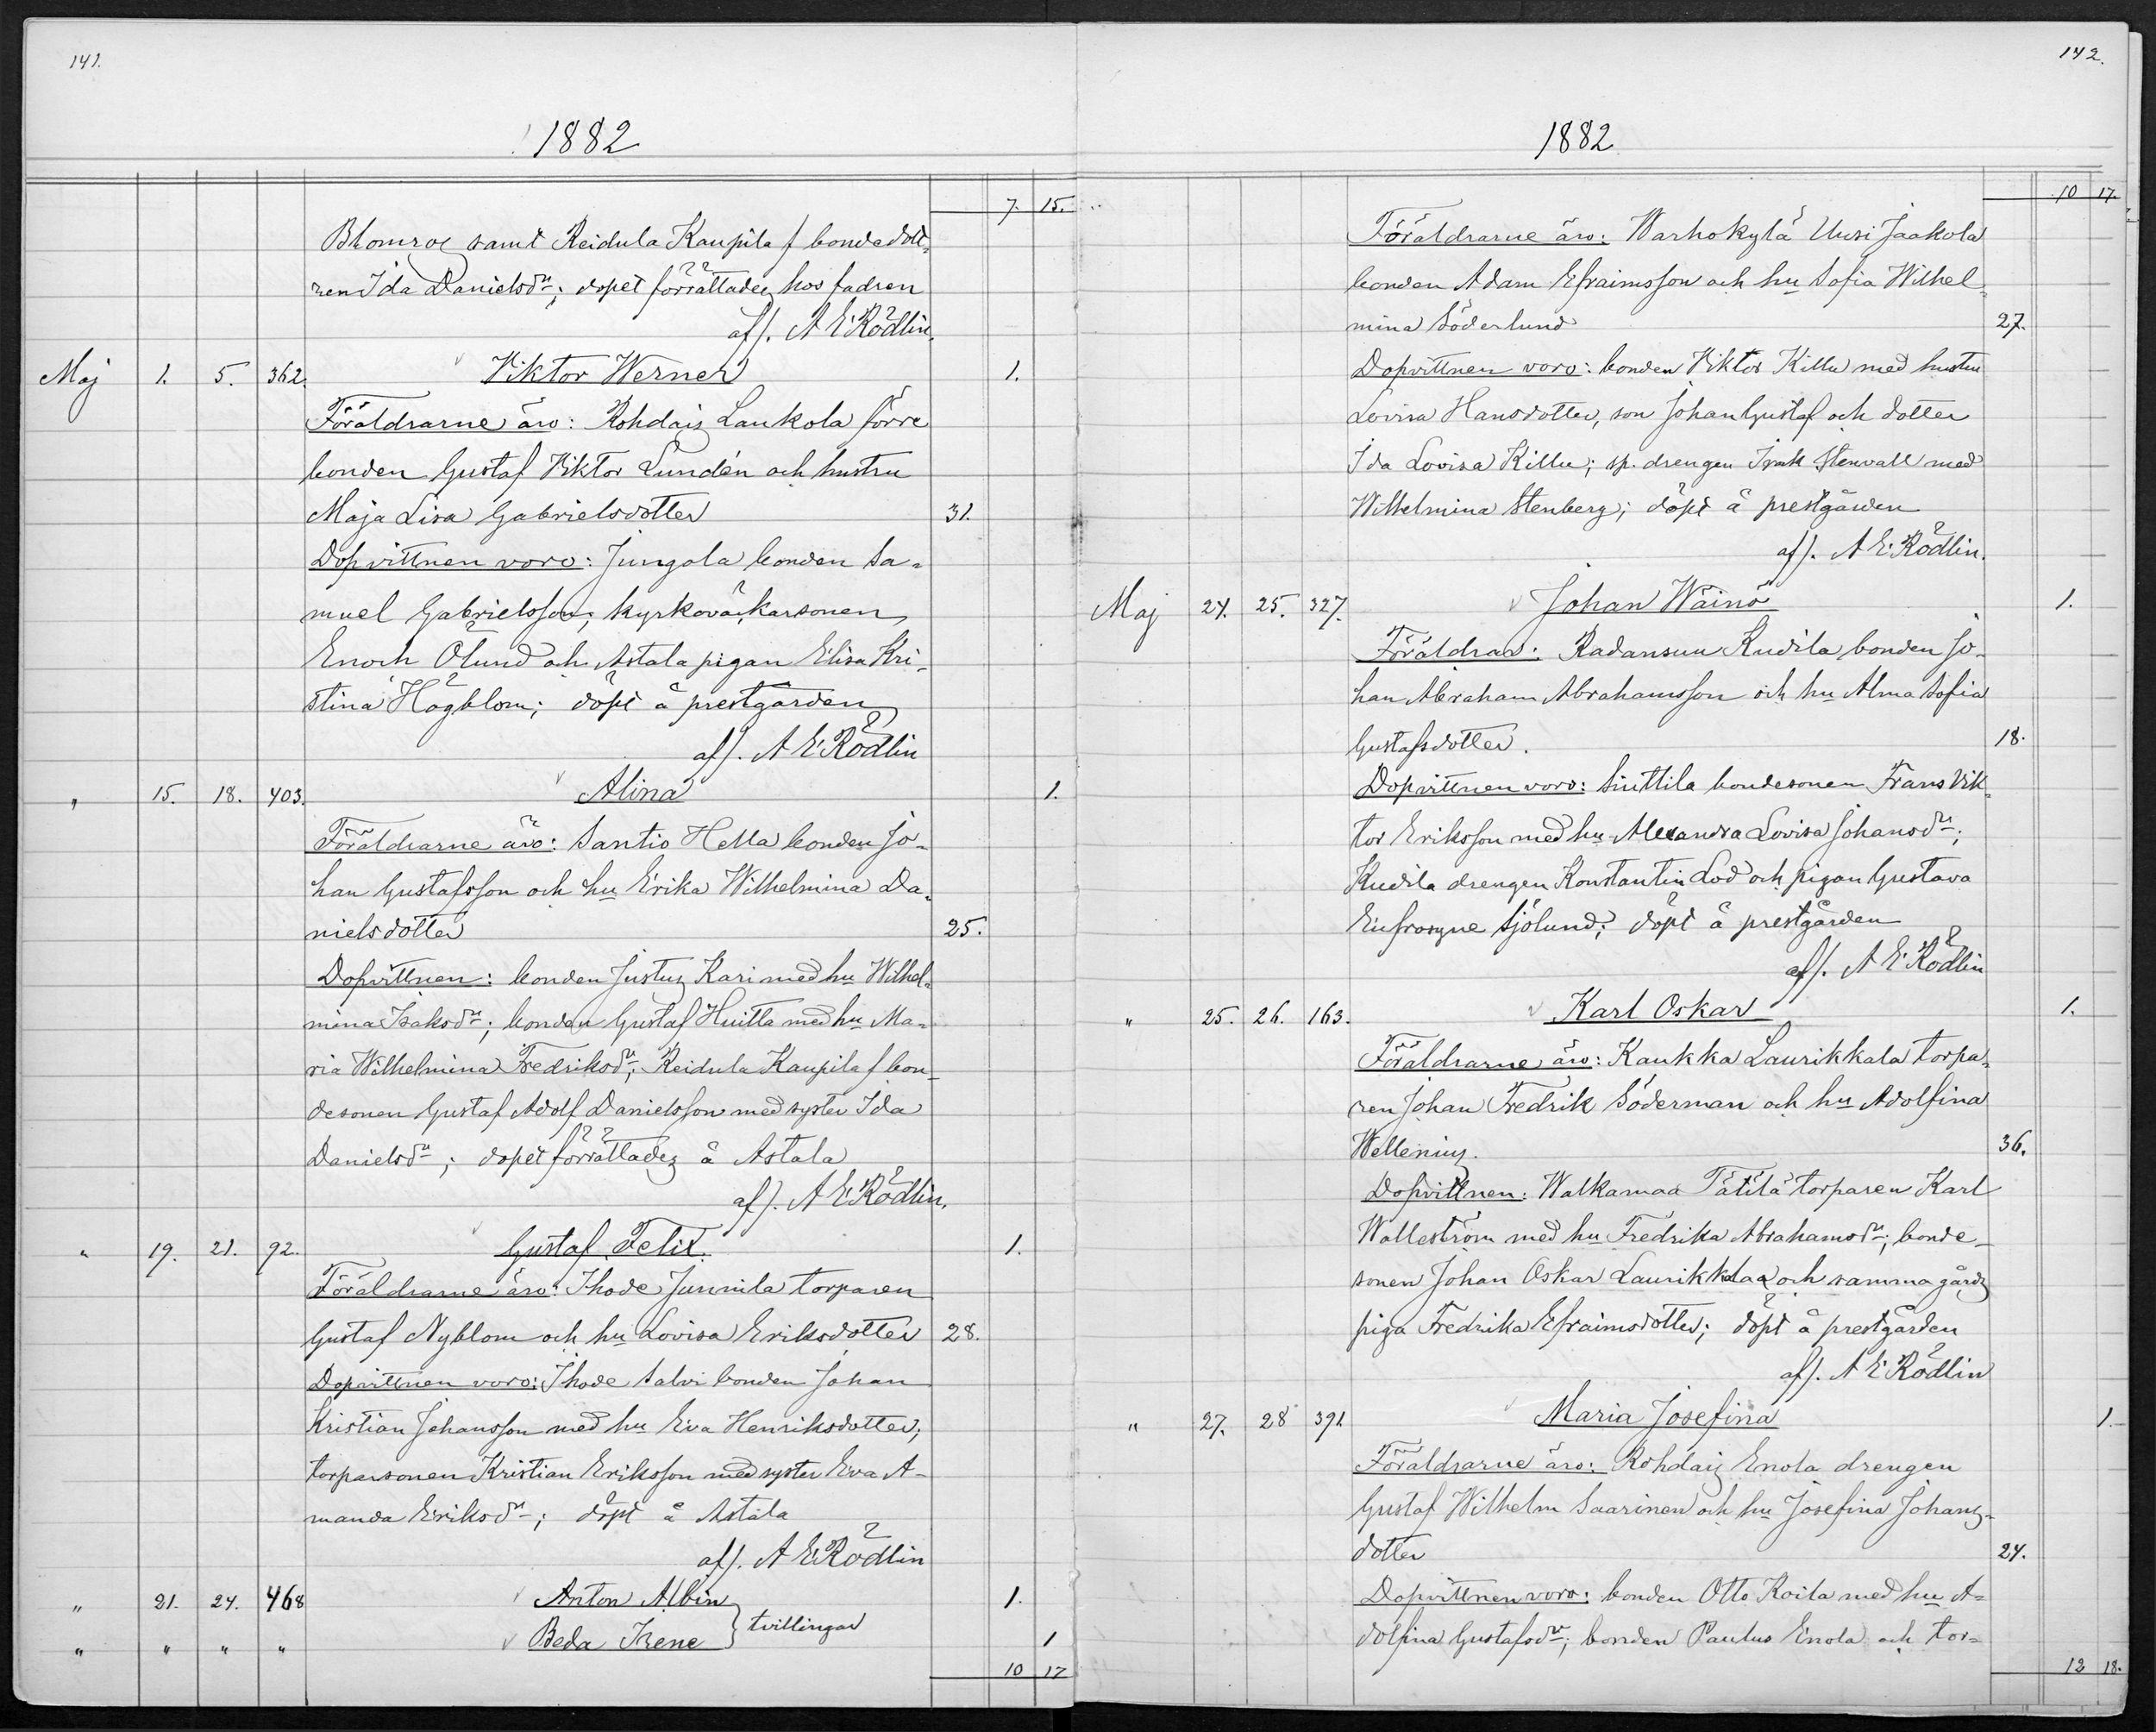 141.
1882
7. 15.
Blomros samt Reidula Kaupila f bondedott-
ren Ida Danielsdr; dopet förrättades hos fadren
af). A E Rödlin.
Maj 1. 5. 362. Viktor Werner 1.
Föräldrarne äro: Rohdais Laukola förre
bonden Gustaf Viktor Lundén och hustru
Maja Lisa Gabrielsdotter 31.
Dopvittnen voro: Jungola bonden Sa-
muel Gabrielsson; kyrkoväkaresonen
Enoch Ölund och Astala pigan Elisa Kri-
stina Högblom; döpt å prestgården
af). A E Rödlin
" 15. 18. 403. Alina 1.
Föräldrarne äro: Santio Hella bonden Jo-
han Gustafsson och hu Erika Wilhelmina Da-
nielsdotter 25.
Dopvittnen: bonden Justus Kari med hu Wilhel-
mina Isaksdr; bonden Gustaf Huitta med hu Ma-
ria Wilhelmina Fredriksdr; Reidula Kaupila f bon-
desonen Gustaf Adolf Danielsson med syster Ida
Danielsdr; dopet förrättades å Astala
af). A E Rödlin.
" 19. 21. 92. Gustaf Felix 1.
Föräldrarne äro: Ihode Junnila torparen
Gustaf Nyblom och hu Lovisa Eriksdotter 28.
Dopvittnen voro: Ihode Salvi bonden Johan
Kristian Johansson med hu Eva Henriksdotter;
torparsonen Kristian Eriksson med syster Eva A-
manda Eriksdr; döpt å Astala
af). A E Rödlin
" 21. 24. 468 Anton Albin 1.
tvillingar
" " " " Beda Irene 1
10 17
142.
1882
10 17.
Föräldrarne äro: Warhokylä Uusi Jaakola
bonden Adam Efraimsson och hu Sofia Wilhel-
mina Söderlund 27.
Dopvittnen voro: bonden Viktor Killu med hustru
Lovisa Hansdotter, son Johan Gustaf och dotter
Ida Lovisa Killu; sp. drengen Isak Stenvall med
Wilhelmina Stenberg; döpt å prestgården
af). A E Rödlin.
Maj 24. 25. 327. Johan Wäinö 1.
Föräldrar: Radansuu Kudila bonden Jo-
han Abraham Abrahamsson och hu Alma Sofia
Gustafsdotter. 18.
Dopvittnen voro: Suttila bondesonen Frans Vik-
tor Eriksson med hu Alexandra Lovisa Johansdr;
Kudila drengen Konstantin Lod och pigan Gustava
Eufrosyne Sjölund; döpt å prestgården
af). A E Rödlin
" 25. 26. 163. Karl Oskar 1.
Föräldrarne äro: Kaukka Laurikkala torpa-
ren Johan Fredrik Söderman och hu Adolfina
Wellenius. 36.
Dopvittnen: Walkamaa Tätilä torparen Karl
Walleström med hu Fredrika Abrahamsdr; bonde-
sonen Johan Oskar Laurikkala och samma gårds
piga Fredrika Efraimsdotter; döpt å prestgården
af). A E Rödlin
" 27. 28 391 Maria Josefina 1.
Föräldrarne äro: Rohdais Enola drengen
Gustaf Wilhelm Saarinen och hu Josefina Johans-
dotter 24.
Dopvittnen voro: bonden Otto Roila med hu A-
dolfina Gustafsdr; bonden Paulus Enola och tor-
12 18.